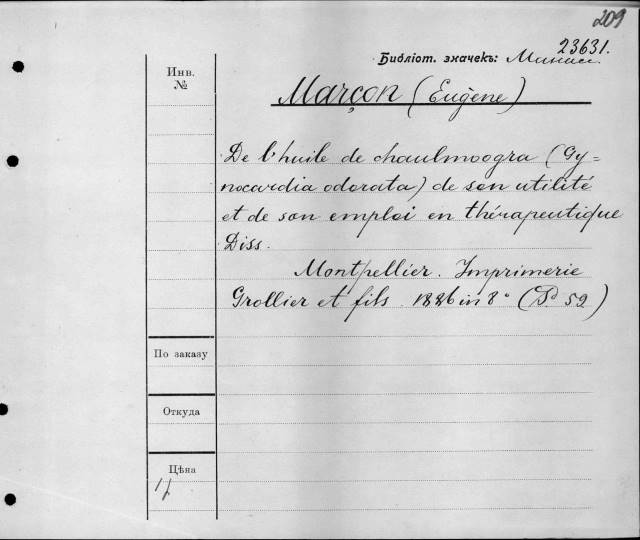 209
23631.
Библіот. значекъ:
Инв.
№
Marçon (Eugène)
De l'huile de chaulmoogra (Gy=
nocardia odorata) de son utilité
et de son emploi en thérapeutique
Diss.
Montpellier. Imprimerie
Grollier et fils 1886 in 8° (P. 52)
По заказу
Откуда
Цѣна